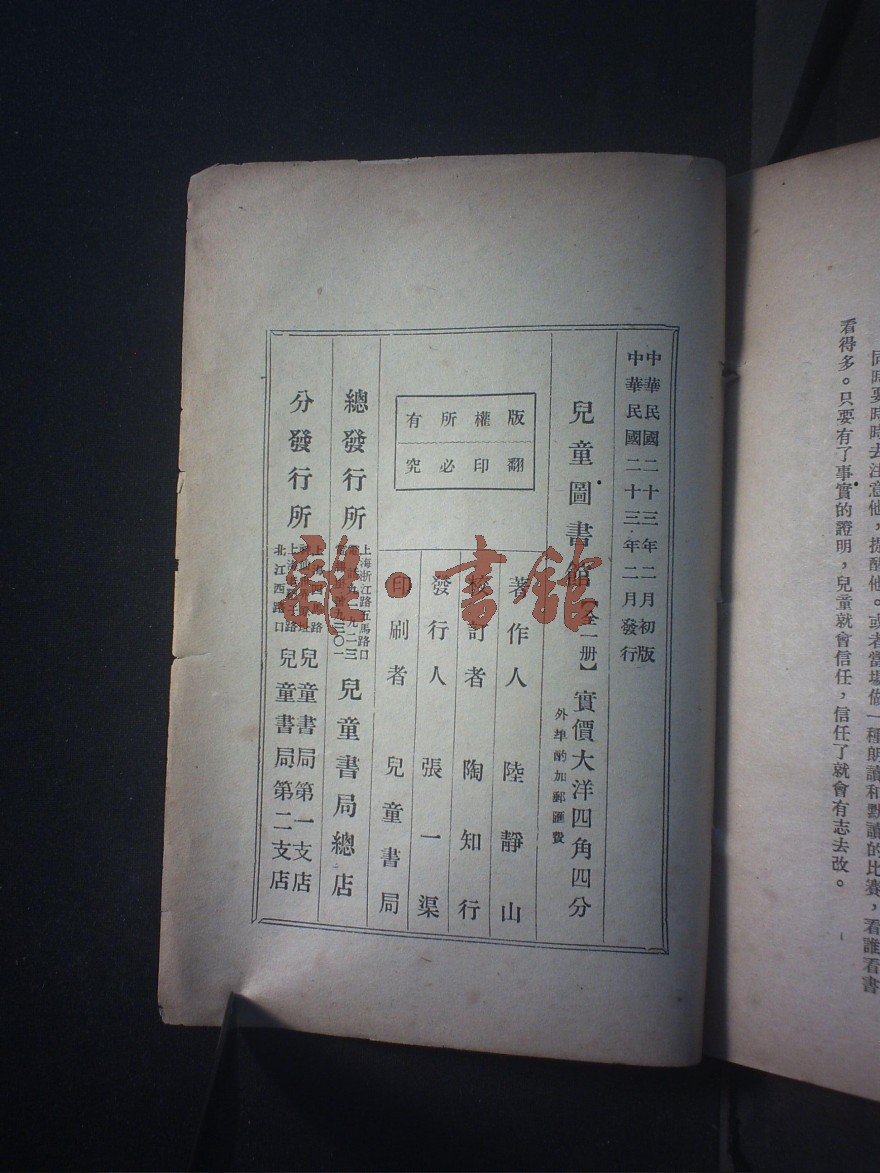 同時要時時去注意他，提醒他。或者當場做一種朗讀和默讀的比賽，看誰看書
看得多。只要有了事實的證明，兒童就會信任，信任了就會有志去改。
中華民國二十三年二月初版
中華民國二十三年二月發行
兒童圖書館【全一册】實價大洋四角四分
外埠酌加郵匯費
版權所有
翻印必究
著作人 陸靜山
校訂者 陶知行
發行人 張一渠
印刷者 兒童書局
總發行所
上海浙江路五馬路口
兒童書局總店
分發行所
兒童書局第一支店
北江西路口
兒童書局第二支店
雜·書館